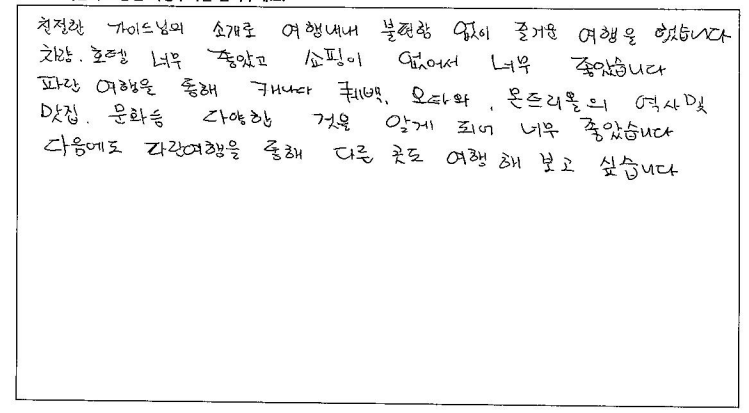 친절한 가이드님의 소개로 여행내내 불편함 없이 즐거운 여행을 했습니다
차량. 호텔 너무 좋았고 쇼핑이 없어서 너무 좋았습니다
파란 여행을 통해 캐나다 퀘백, 오타와, 몬트리올의 역사 및
맛집. 문화등 다양한 것을 알게 되어 너무 좋았습니다
다음에도 파란여행을 통해 다른 곳도 여행 해 보고 싶습니다